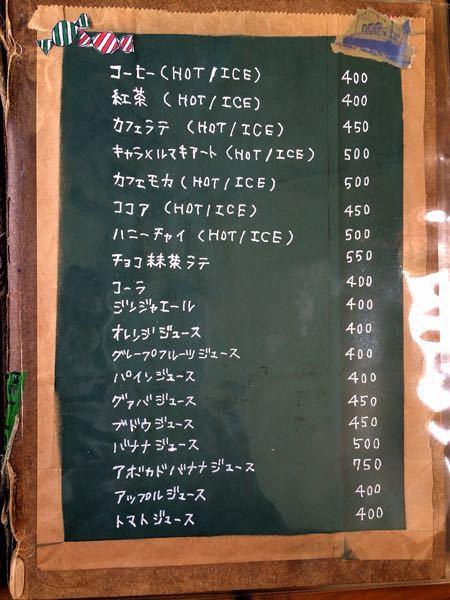 コーヒー(HOT/ICE) 400
紅茶 (HOT/ICE) 400
カフェラテ (HOT/ICE) 450
キャラメルマキアート (HOT/ICE) 500
カフェモカ (HOT/ICE) 500
ココア (HOT/ICE) 450
ハニーチャイ (HOT/ICE) 500
チョコ抹茶ラテ 550
コーラ 400
ジンジャエール 400
オレンジジュース 400
グレープフルーツジュース 400
パインジュース 400
グァバジュース 450
ブドウジュース 450
バナナジュース 500
アボカドバナナジュース 750
アップルジュース 400
トマトジュース 400